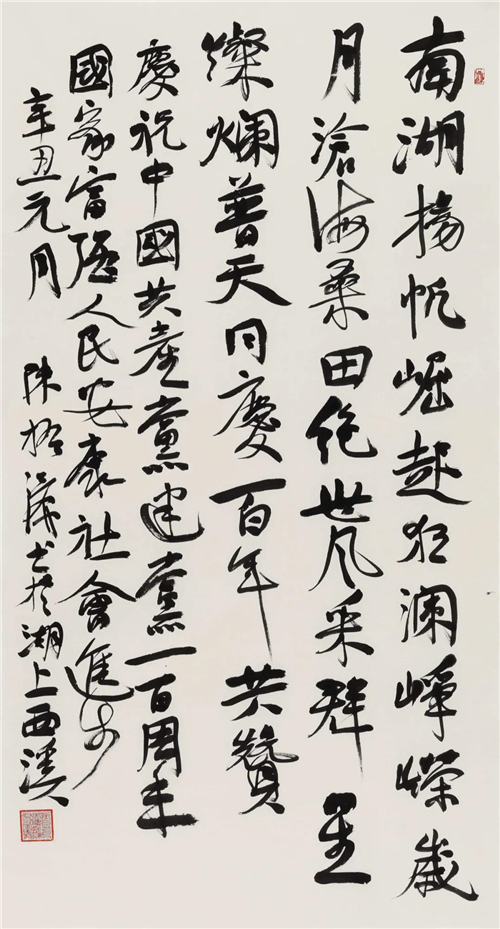 南湖揚帆崛起狂瀾崢嶸歲
月滄海桑田絕世風采群星
燦爛普天同慶百年共贊
慶祝中國共產黨建黨一百周年
國家富強人民安康社會進步
辛丑元月 陳振濂書於湖上西溪